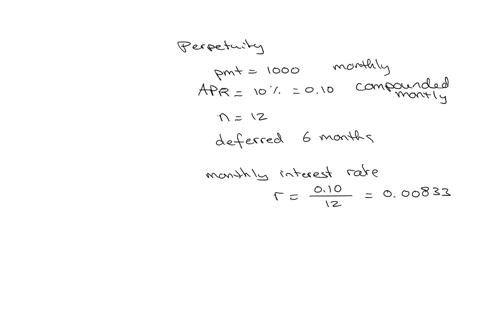 Perpetuity
pmt = 1000 monthly
APR = 10% = 0.10 compounded montly
n = 12
deferred 6 months
monthly interest rate
r = 0.10 / 12 = 0.00833